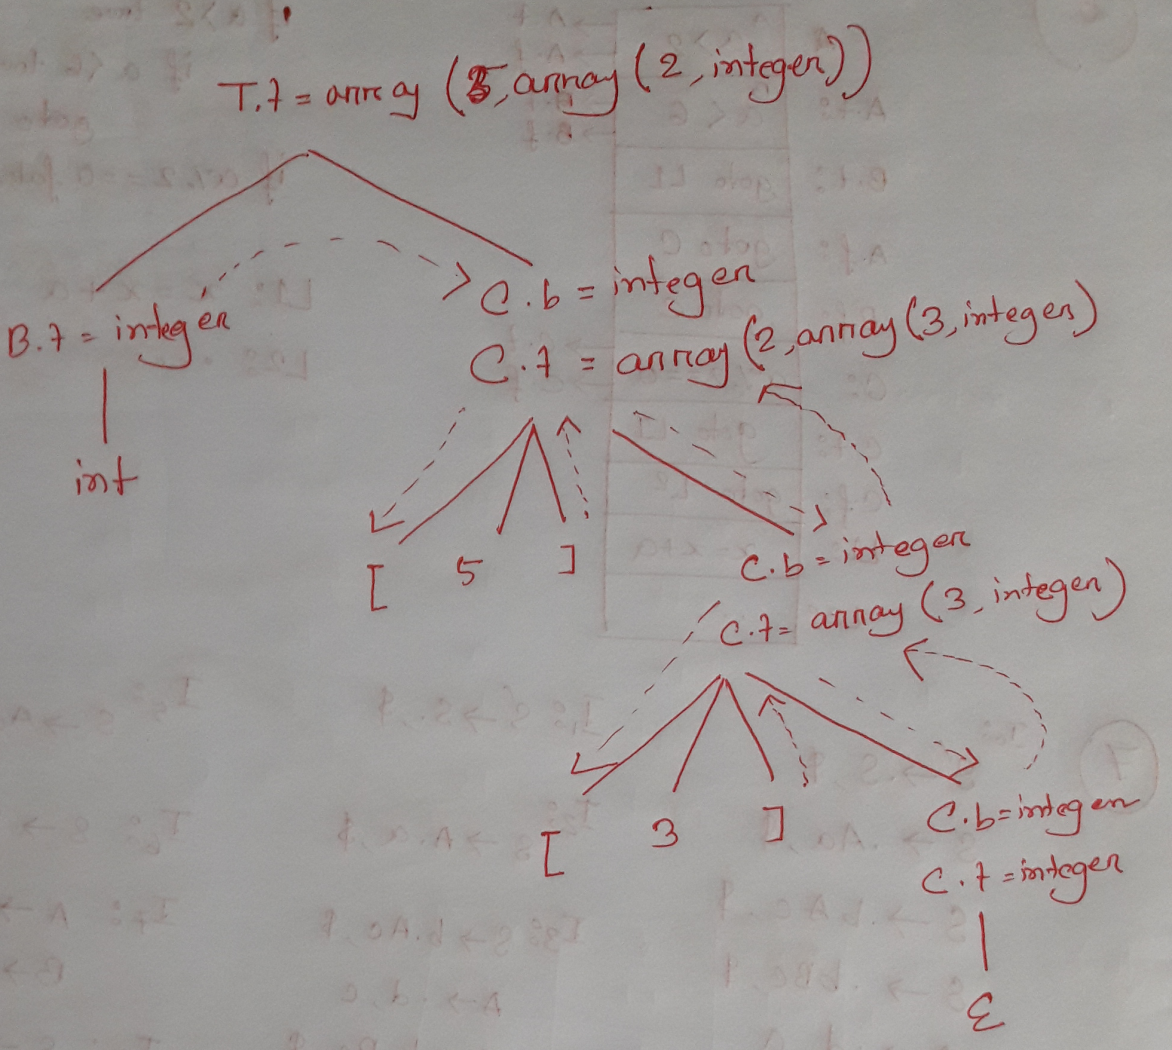 T.t = array (5, array (2, integer))
B.t = integer
C.b = integer
C.t = array (2, array (3, integer)
int
[ 5 ]
C.b = integer
C.t = array (3, integer)
[ 3 ]
C.b = integer
C.t = integer
ε